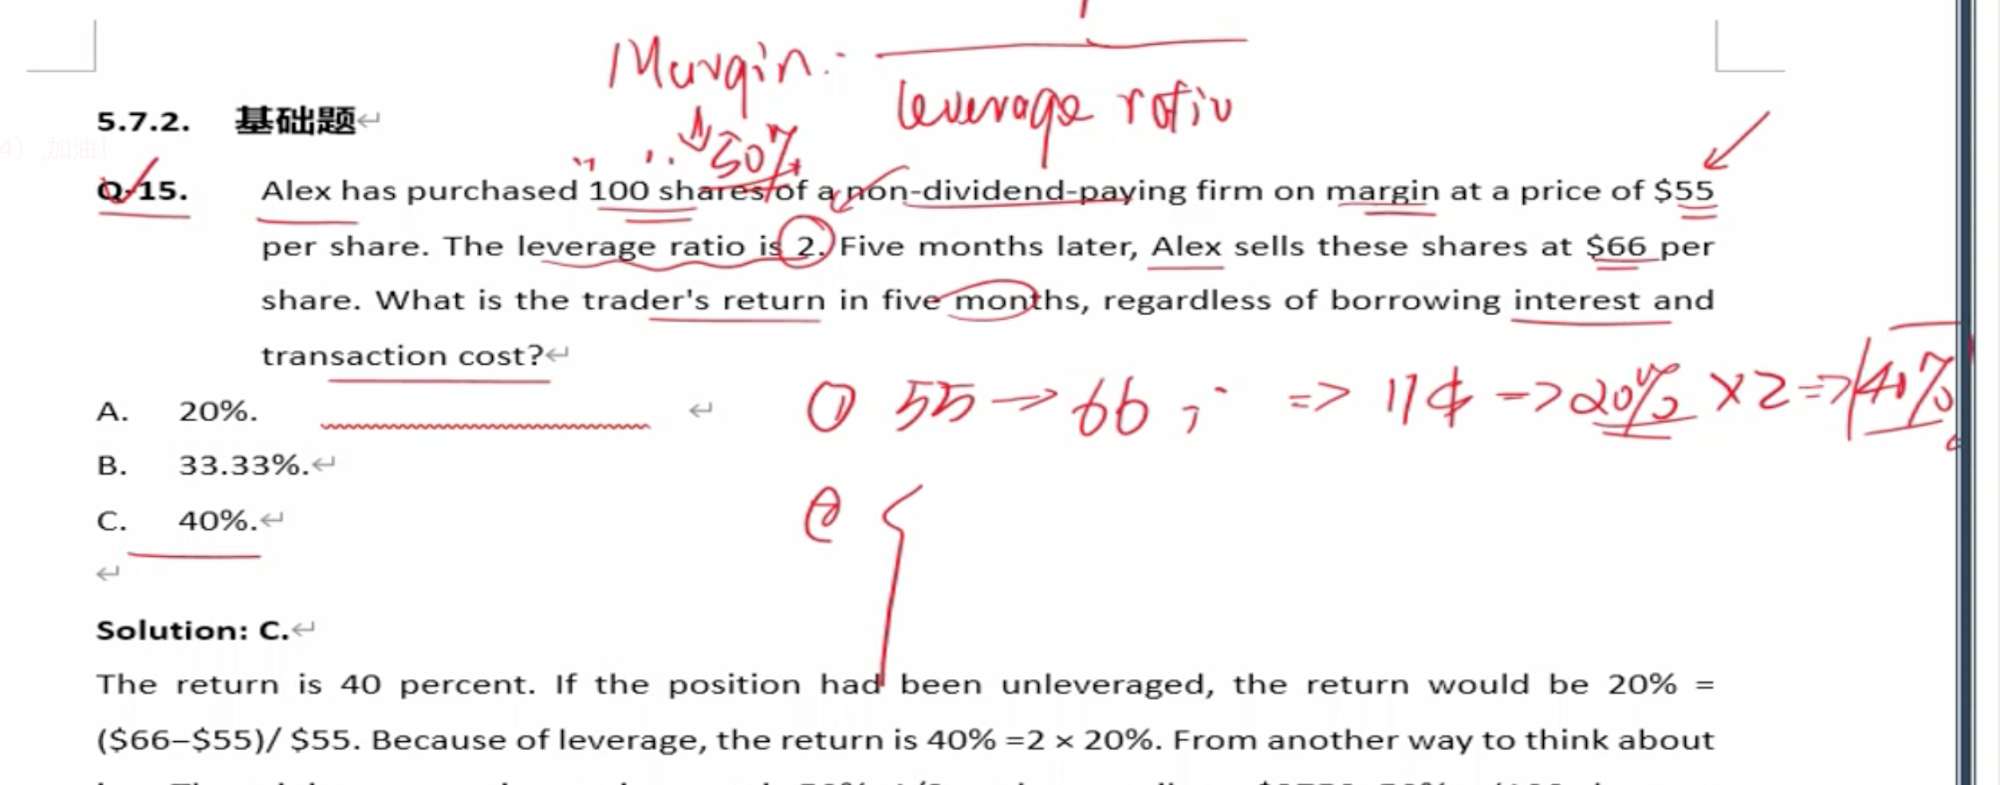 Margin.
leverage ratio
50%
5.7.2. 基础题
Q-15. Alex has purchased 100 shares of a non-dividend-paying firm on margin at a price of $55
per share. The leverage ratio is 2. Five months later, Alex sells these shares at $66 per
share. What is the trader's return in five months, regardless of borrowing interest and
transaction cost?
① 55 → 66 ; => 11$ => 20% ×2 => 40%
A. 20%.
B. 33.33%.
C. 40%.
Solution: C.
The return is 40 percent. If the position had been unleveraged, the return would be 20% =
($66–$55)/ $55. Because of leverage, the return is 40% =2 × 20%. From another way to think about